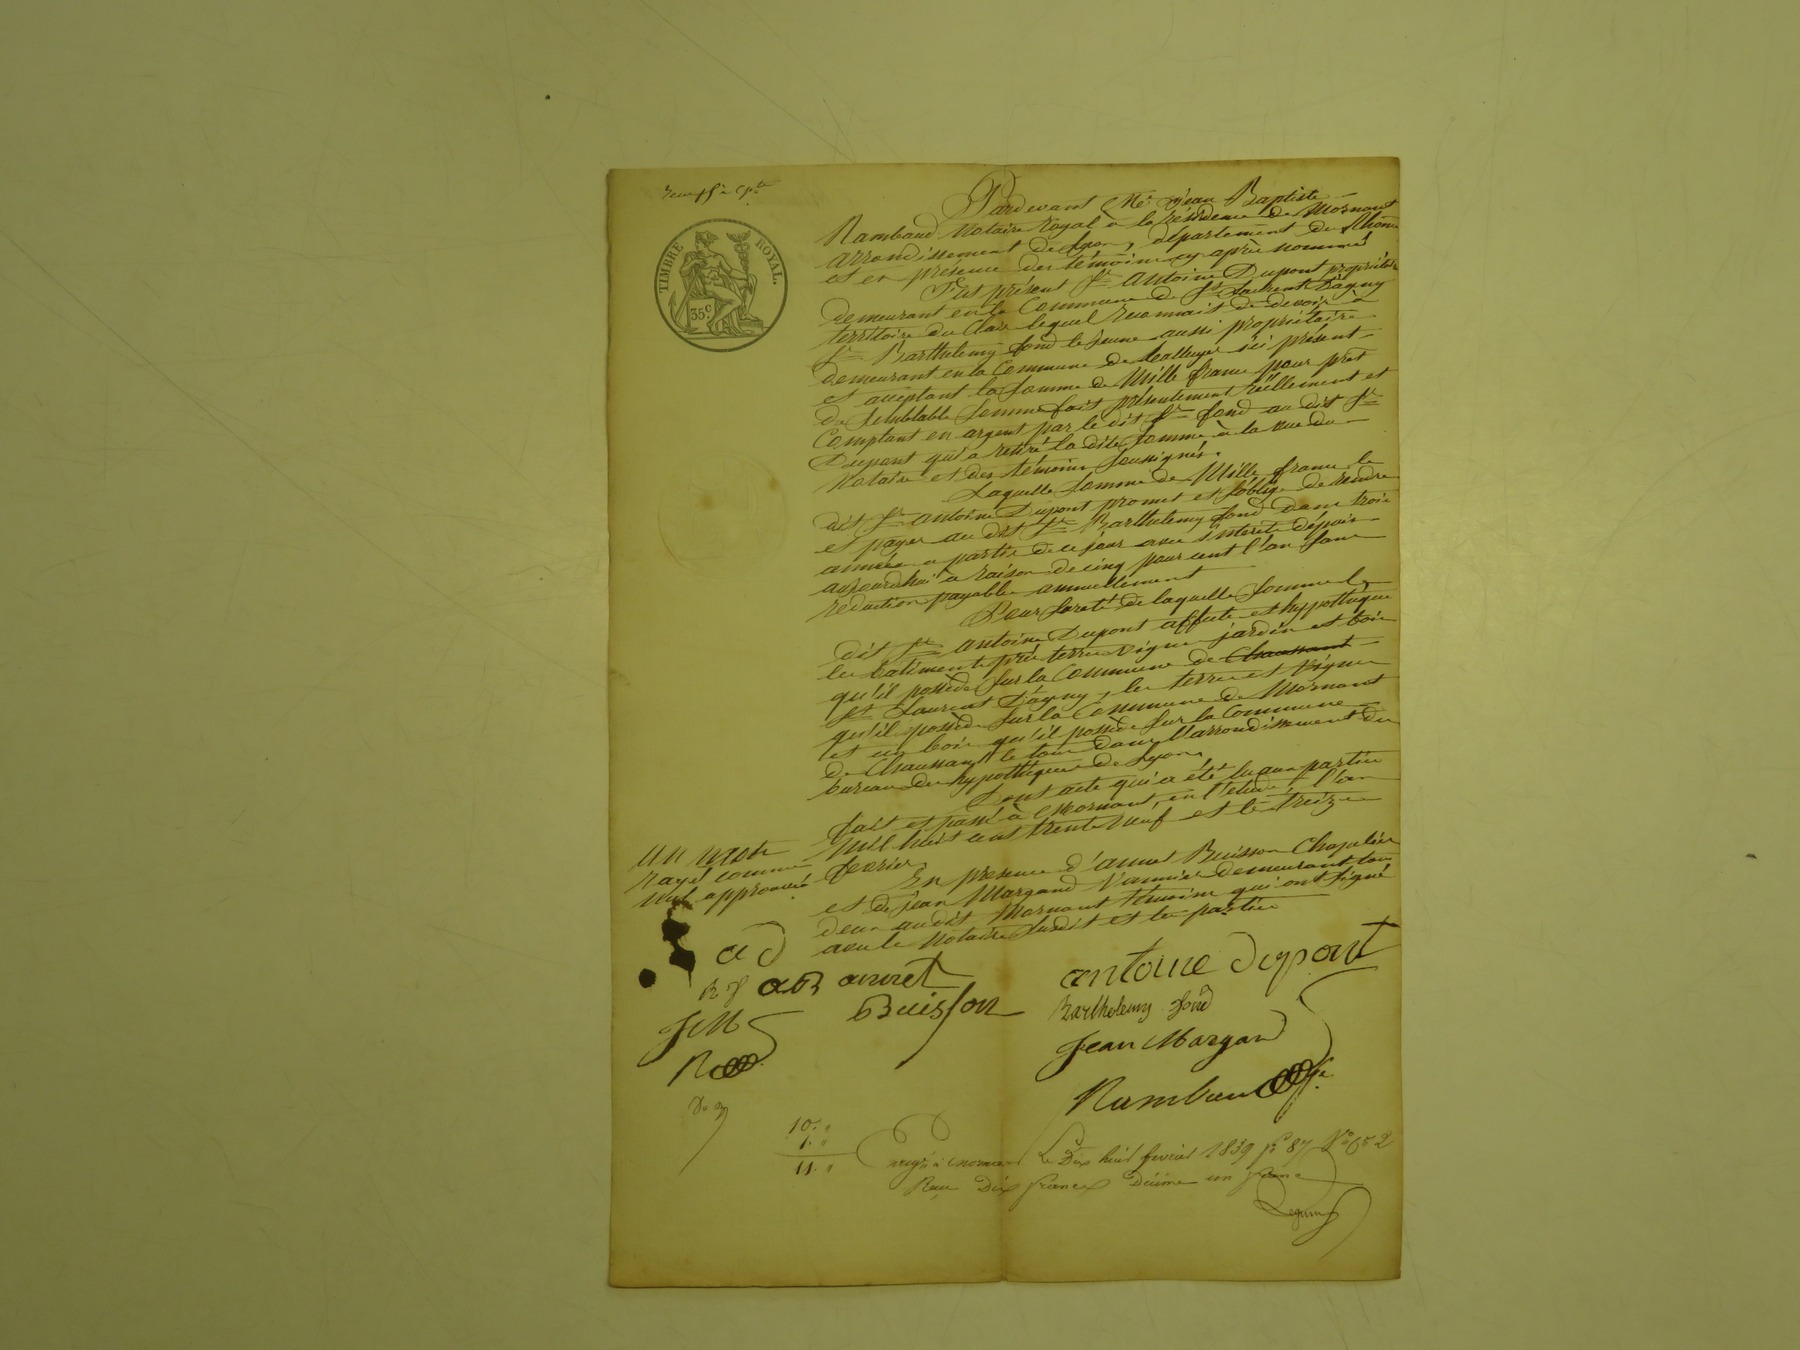 TIMBRE ROYAL.
35c.
Pardevant Me jean Baptiste
Rambaud Notaire Royal à la résidence de Mornant
arrondissement de Lyon, département du Rhône
et en présence des témoins cy après nommés
Est présent Sr antoine Dupont propriétaire
demeurant en la Commune de St Laurent D'agny
territoire du Clave lequel reconnait de devoir à
Sr Barthelemy fond le jeune aussi propriétaire
demeurant en la Commune de ici présent
et acceptant la somme de Mille francs pour prêt
de semblable somme fait présentement réellement et
Comptant en argent par le dit Sr fond au dit Sr
Dupont qui a retiré la dite somme à la vue du
Notaire et des témoins soussignés.
Laquelle somme de Mille francs le
dit Sr antoine Dupont promet et s'oblige de rendre
et payer au dit Sr Barthelemy fond dans trois
années a partir de ce jour avec interêts dépuis
aujourdhui a raison de cinq pour cent l'an sans
réduction payables annuellement
Pour sureté de laquelle somme le
dit Sr antoine Dupont affecte et hypothéque
les batiments prés terres vignes jardin et bois
qu'il possède sur la Commune de Chaussant
St Laurent D'agny, les terres et vignes
qu'il possède sur la Commune de Mornant
et un bois qu'il possède sur la Commune
de Chaussant le tout dans l'arrondissement du
bureau des hypothèques de Lyon.
Dont acte qui a été lu aux parties
fait et passé à Mornant, en l'étude, l'an
Mil huit cent trente neuf et le treize
fevrier
En presence d'annet Buisson Chapelier
et de jean Margand Vannier demeurant tous
deux audit Mornant témoins qui ont signé
avec le Notaire susdit et les parties
un mot
rayé comme
nul approuvé
aD
Bf aB annet
Buisson
JM
R
antoine dupont
Barthelemy fond
Jean Margand
Rambaud
10. "
1. "
11. "
Enregté à Mornant Le Dix huit fevrier 1839 fo 87 No 652
Reçu Dix francs Décime un franc